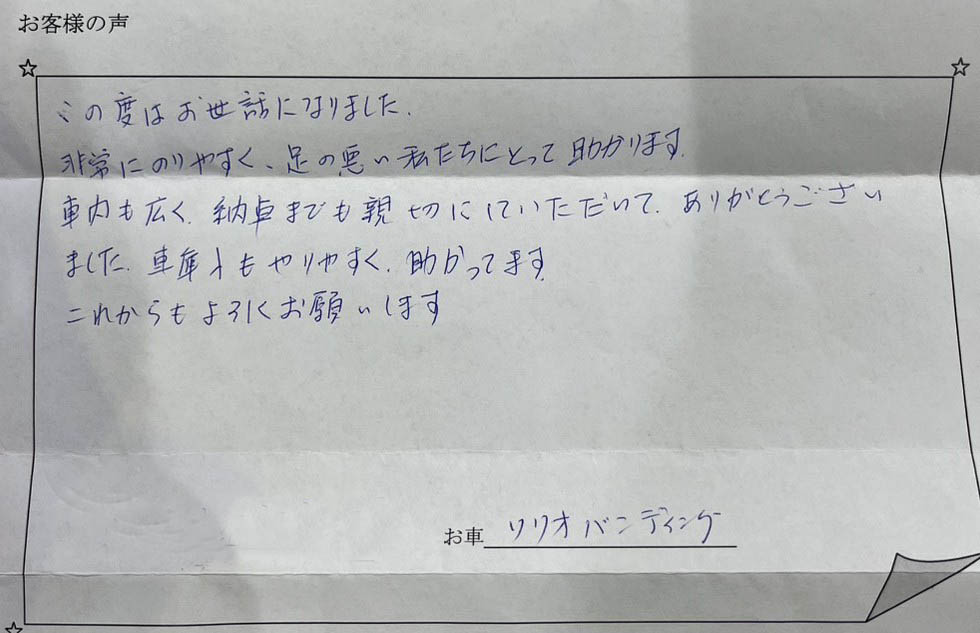 お客様の声
この度はお世話になりました.
非常にのりやすく、足の悪い私たちにとって助かります.
車内も広く、納車までも親切にしていただいて、ありがとうござい
ました. 車庫入もやりやすく、助かってます
これからもよろしくお願いします
お車 ソリオバンディング